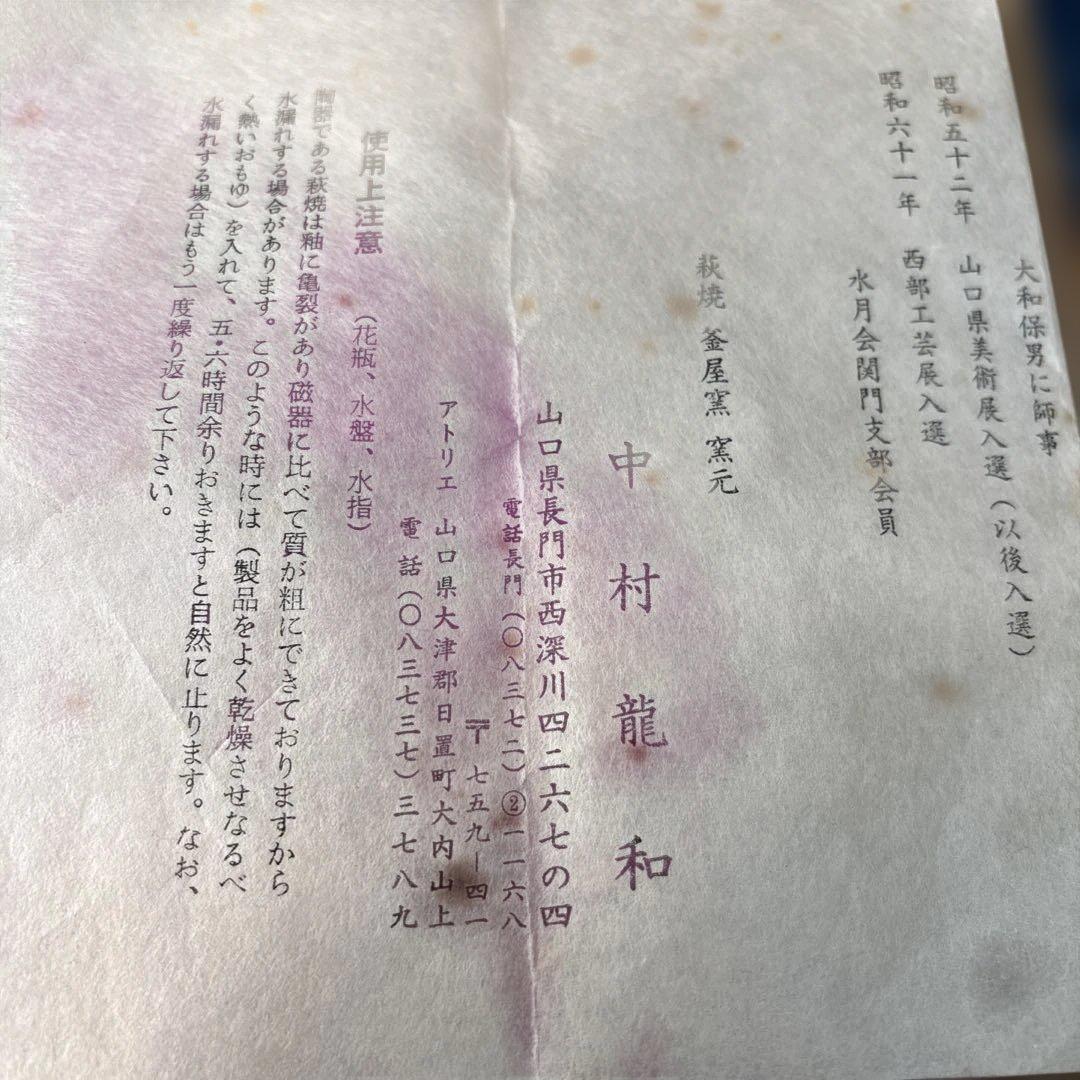 大和保男に師事
昭和五十二年　山口県美術展入選（以後入選）
昭和六十一年　西部工芸展入選
水月会関門支部会員
萩焼　釜屋窯　窯元
中村龍和
山口県長門市西深川四二六七の四
電話長門（〇八三七二）②一一六八
〒七五九―四一
アトリエ　山口県大津郡日置町大内山上
電話（〇八三七三七）三七八九
使用上注意　（花瓶、水盤、水指）
陶器である萩焼は釉に亀裂があり磁器に比べて質が粗にできておりますから
水漏れする場合があります。このような時には（製品をよく乾燥させなるべ
く熱いおもゆ）を入れて、五・六時間余りおきますと自然に止ります。なお、
水漏れする場合はもう一度繰り返して下さい。